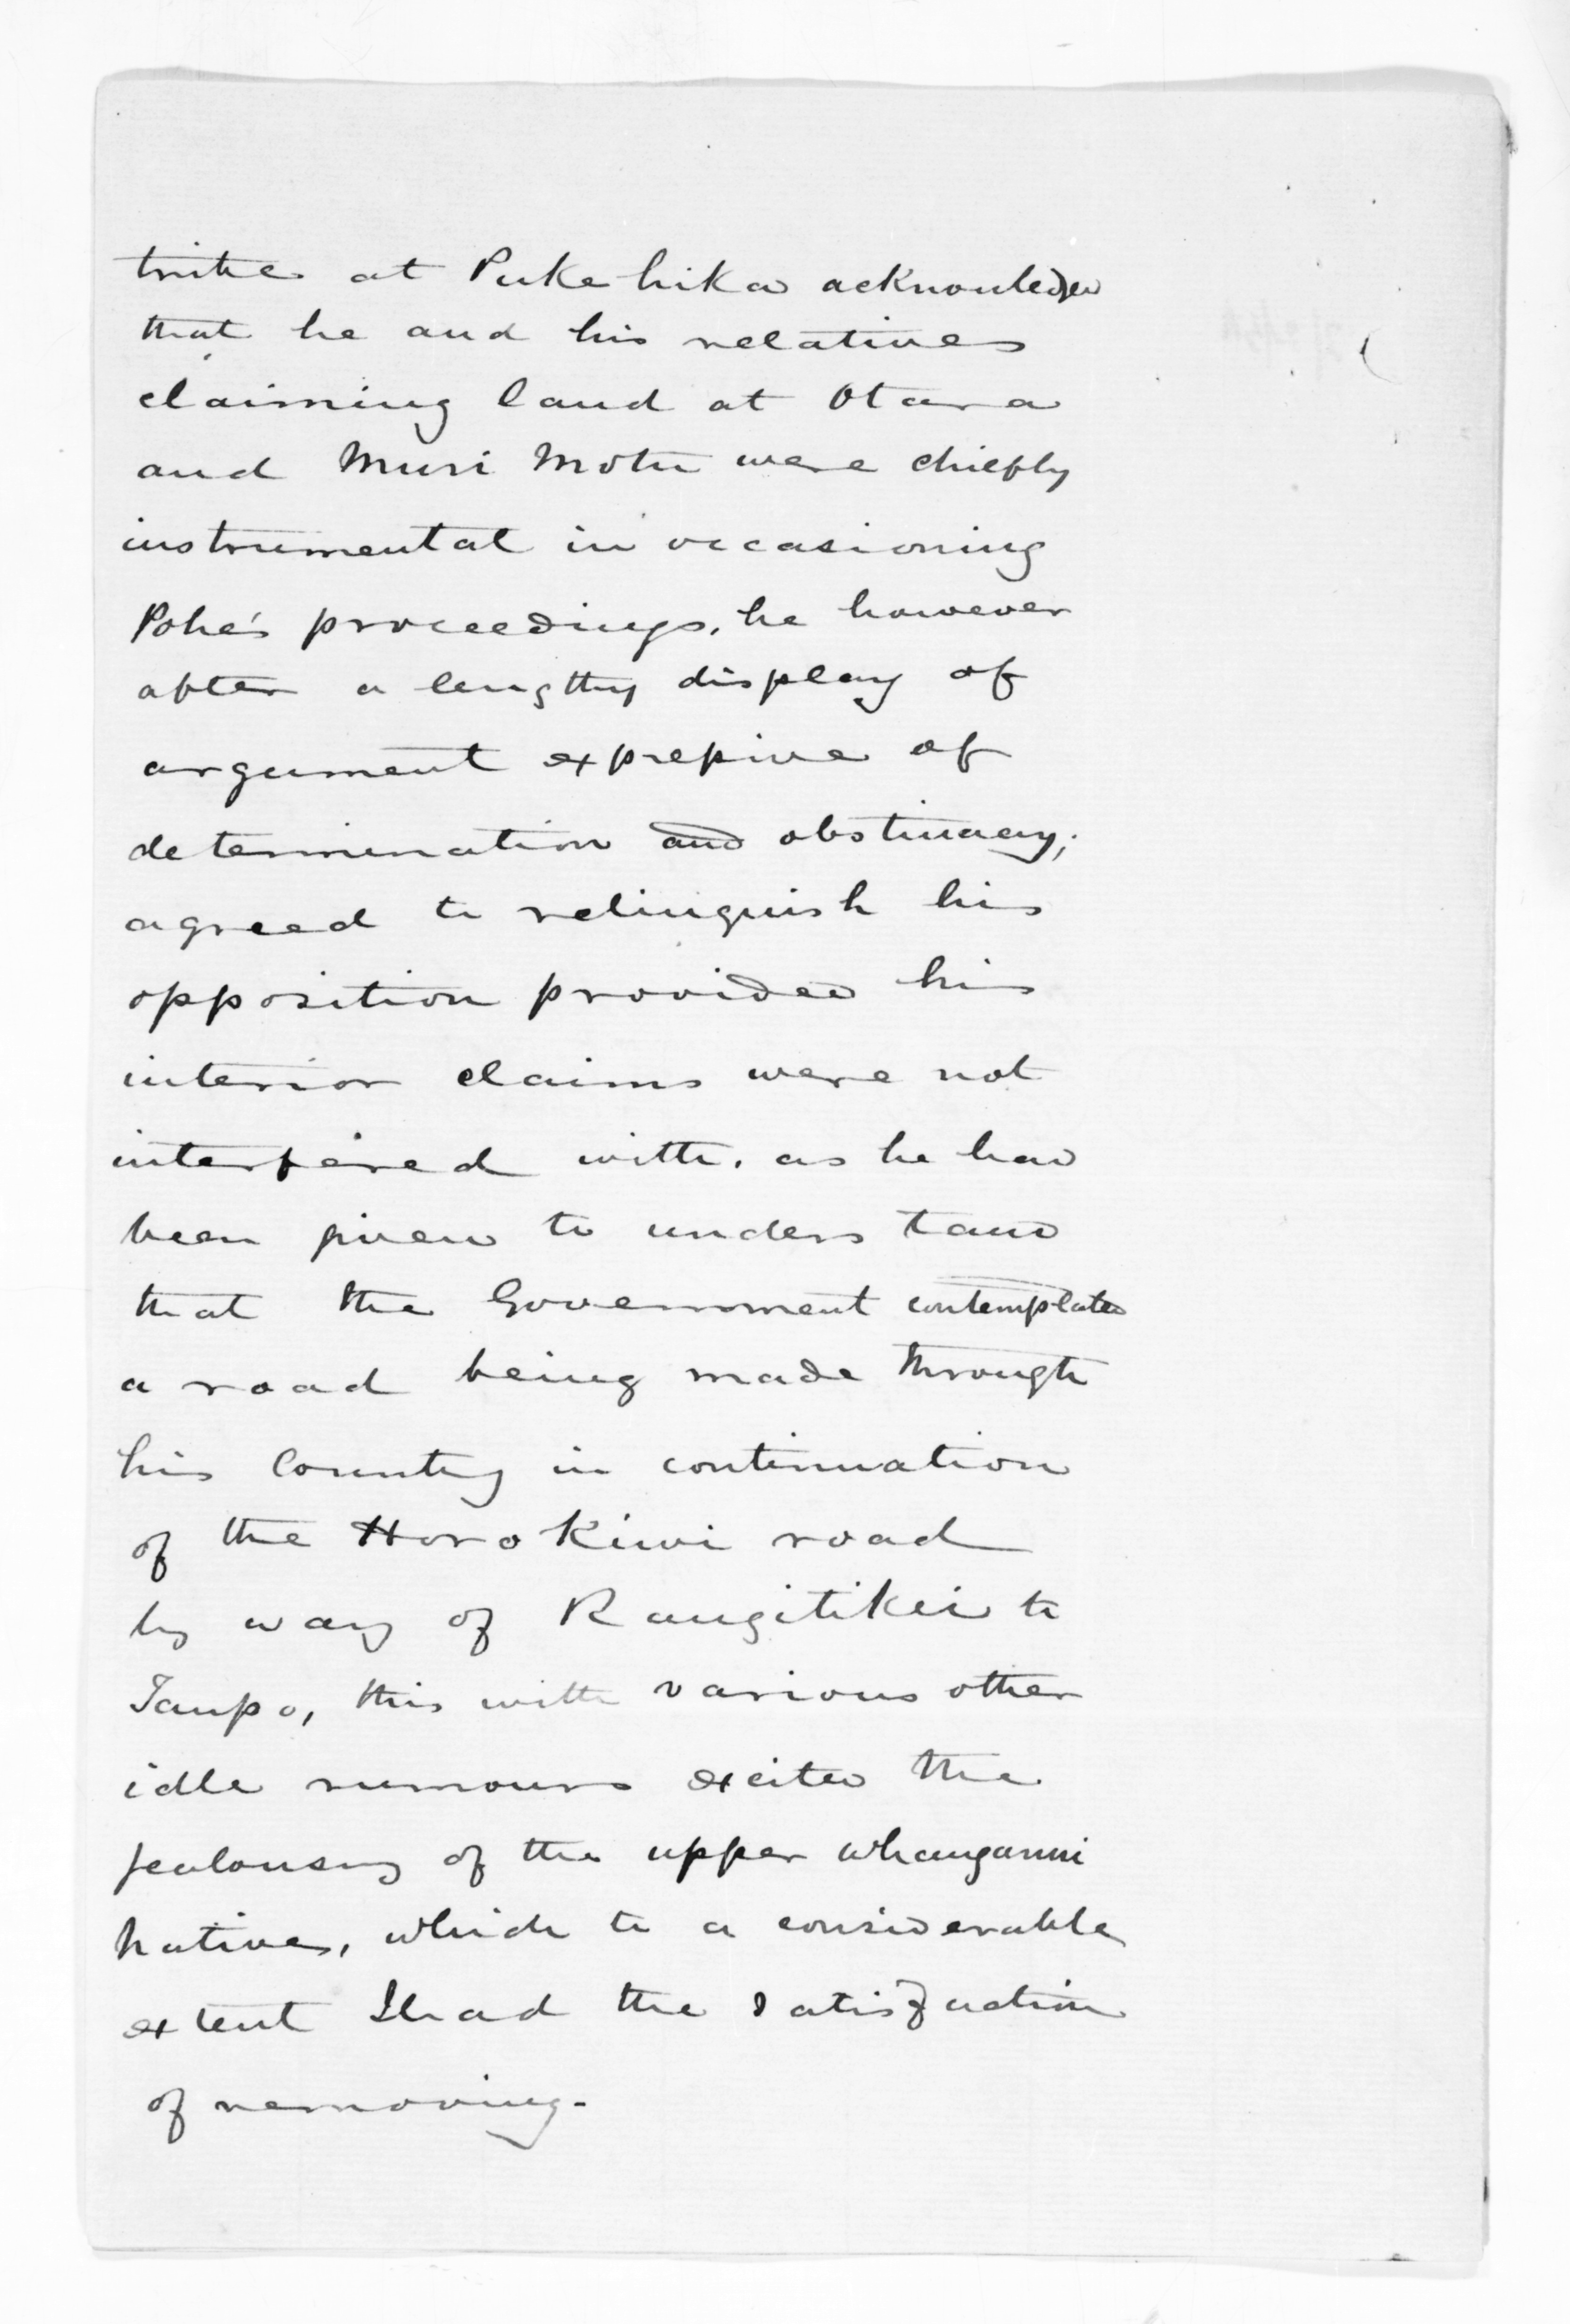 tribe at Pukehika acknowledged
that he and his relatives
claiming land at Otara
and Muri Motu were chiefly
instrumental in occasioning
Pohe's proceedings, he however
after a lengthy display of
argument expressive of
determination and obstinacy;
agreed to relinquish his
opposition provided his
interior claims were not
interfered with, as he had
been given to understand
that the Government contemplated
a road being made through
his Country in continuation
of the Horokiwi road
by way of Rangitikei to
Taupo, this with various other
idle rumours excited the
jealousy of the upper Whanganui
Natives, which to a considerable
extent I had the satisfaction
of removing.